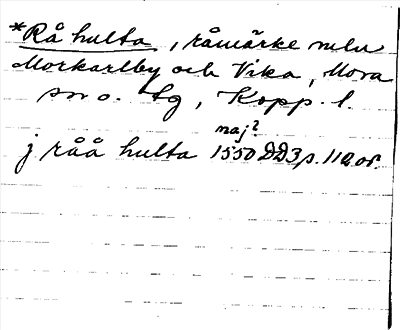 *Rå hulta, råmärke mln
Morkarlby och Vika, Mora
sn o. tg, Kopp. l.
maj?
j råå hulta 1550 DD3 p. 112 or.